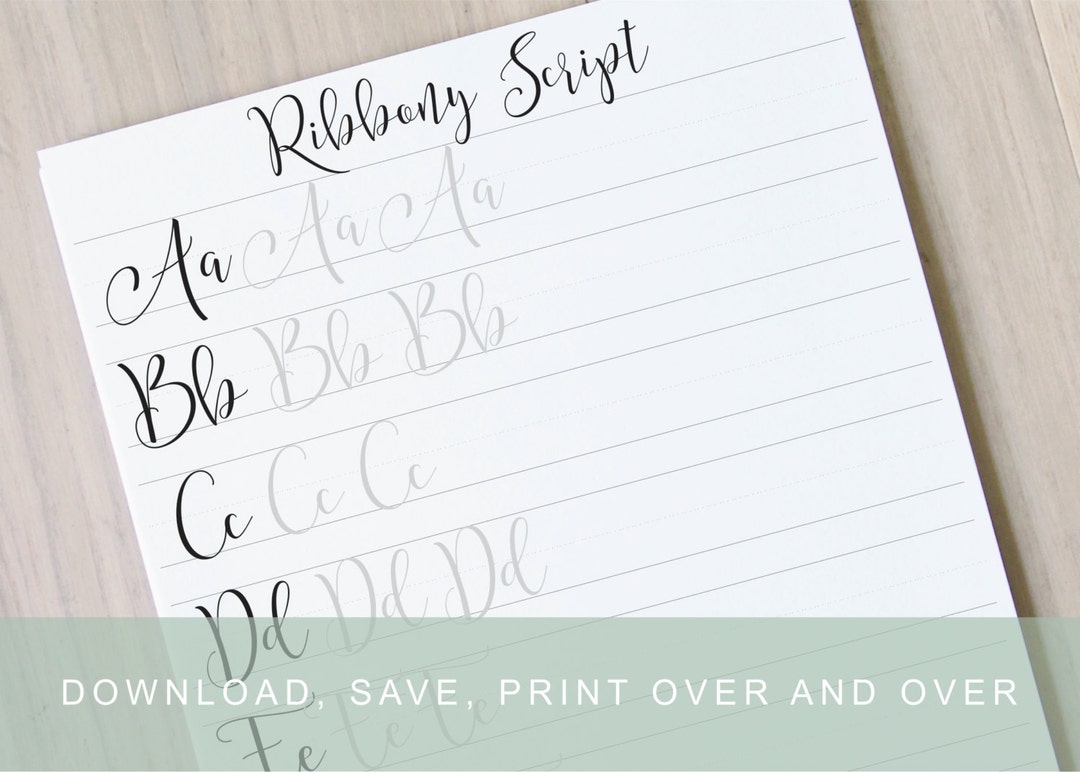 Ribbony Script
Aa Aa Aa
Bb Bb Bb
Cc Cc Cc
Dd Dd Dd
Ee Ee Ee
DOWNLOAD, SAVE, PRINT OVER AND OVER